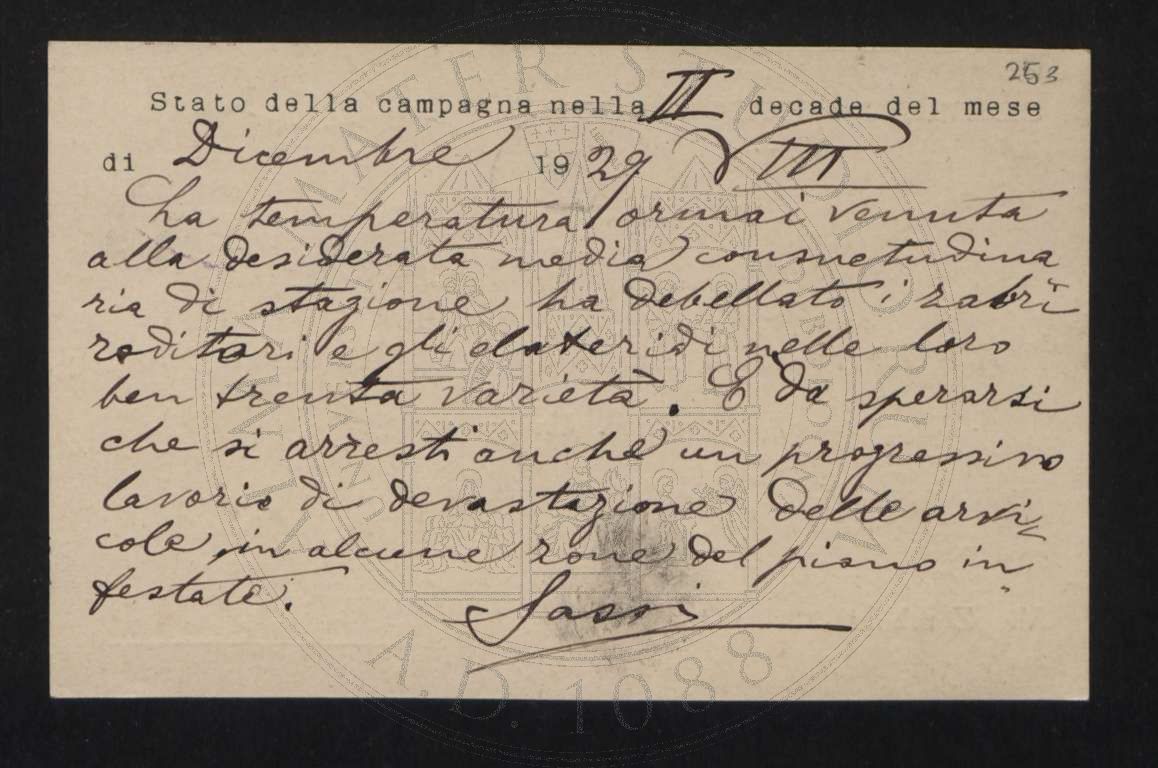 253
Stato della campagna nella II decade del mese
di Dicembre 1929 VIII
La temperatura ormai venuta
alla desiderata media consuetudina
ria di stagione ha debellato i zabri
roditori e gli elateridi nelle loro
ben trenta varietà. E da sperarsi
che si arresti anche un progressivo
lavorio di devastazione delle arvi=
cole in alcune zone del piano in
festate.
Sassi
ALMA MATER STUDIORUM
A.D. 1088